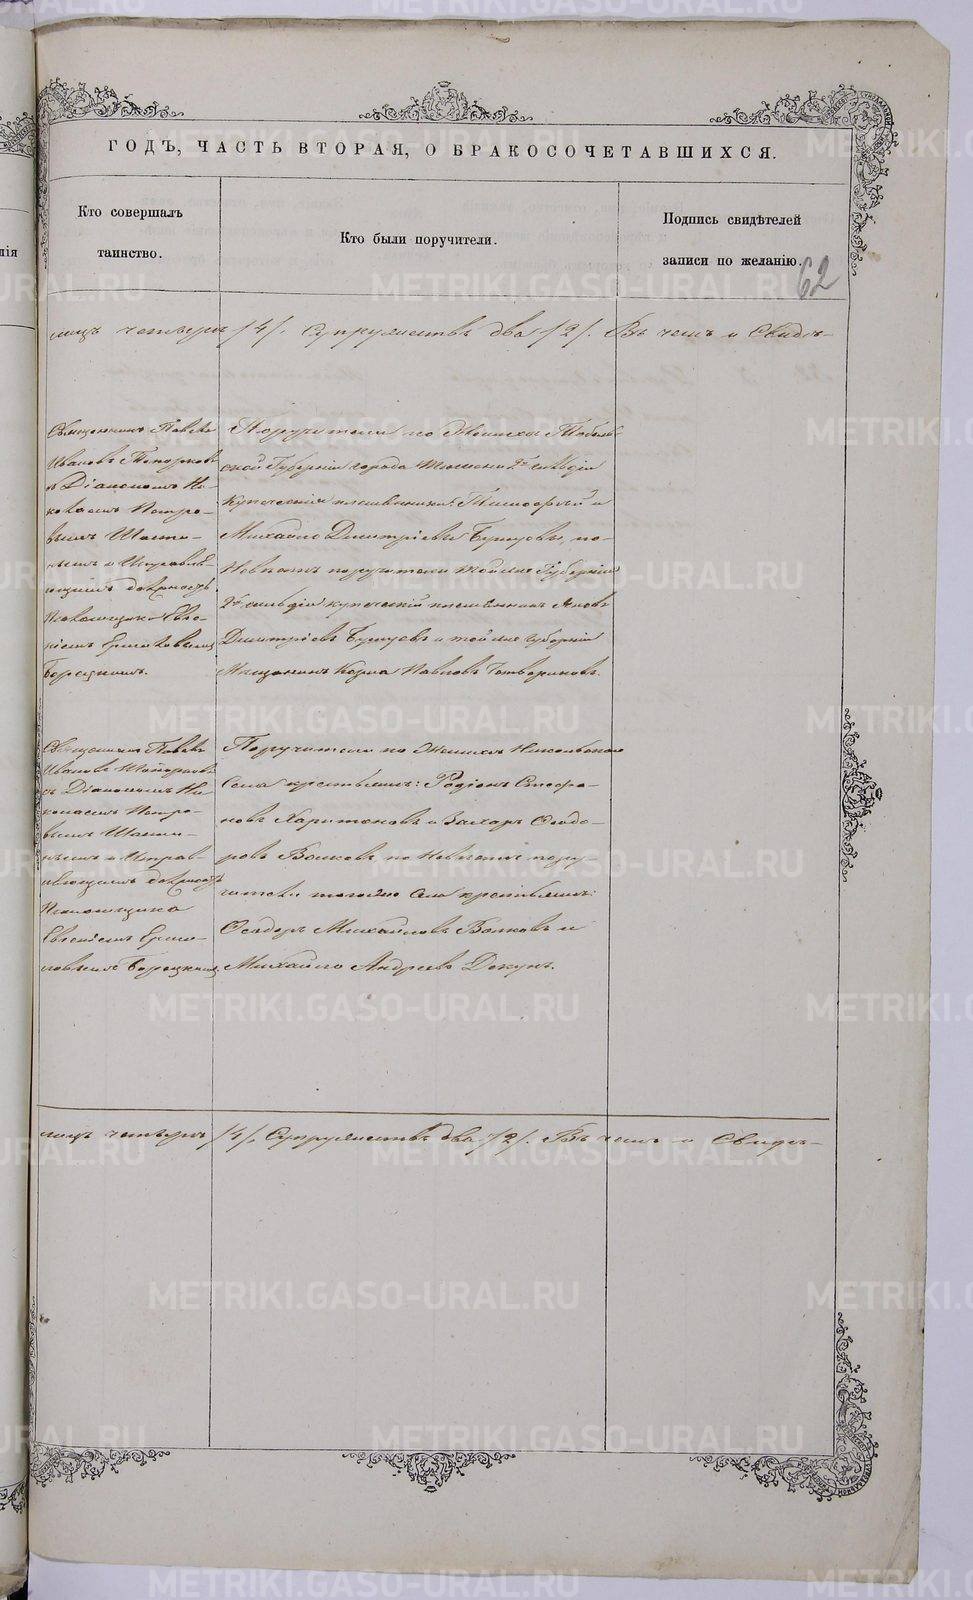 ГОДЪ, ЧАСТЬ ВТОРАЯ, О БРАКОСОЧЕТАВШИХСЯ.
Кто совершалъ
таинство.
Кто были поручители.
Подпись свидѣтелей
записи по желанію.
62
нія
лицъ четверо /4/. Супружествъ два /2/. Въ чемъ и Свидѣ-
Священникъ Павелъ
Ивановъ Топорковъ
съ Діакономъ Ни-
колаемъ Петро-
вымъ
и Исправля-
ющимъ должность
Псаломщика Евге-
ніемъ Ермиловымъ
Борецкимъ.
Поручители по Женихѣ Тоболь
ской Губерніи города Тюмени 2й гильдіи
Купеческіи племянники: Тимофей и
Михайло Димитріевы по
Невѣстѣ поручители той же Губерніи
2й гильдіи купеческій племянникъ Яковъ
Димитріевъ и той же Губерніи
Мещанинъ Козма Павловъ
Священникъ Павелъ
Ивановъ Топорковъ
съ Діакономъ Ни
колаемъ Петро-
вымъ
и Исправ-
ляющимъ должность
Псаломщика
Евгеніемъ Ерми-
ловымъ Борецкимъ
Поручители по Женихѣ Никольскаго
Села крестьяне: Родіонъ Стефа-
новъ Харитоновъ и Захаръ Ѳеодо-
ровъ Волковъ, по Невѣстѣ пору-
чители тогоже Села крестьяне:
Ѳеодоръ Михайловъ Волковъ и
Михайло Андреевъ
лицъ четверо /4/, Супружествъ два /2/. Въ чемъ и Свидѣ-
METRIKI.GASO-URAL.RU